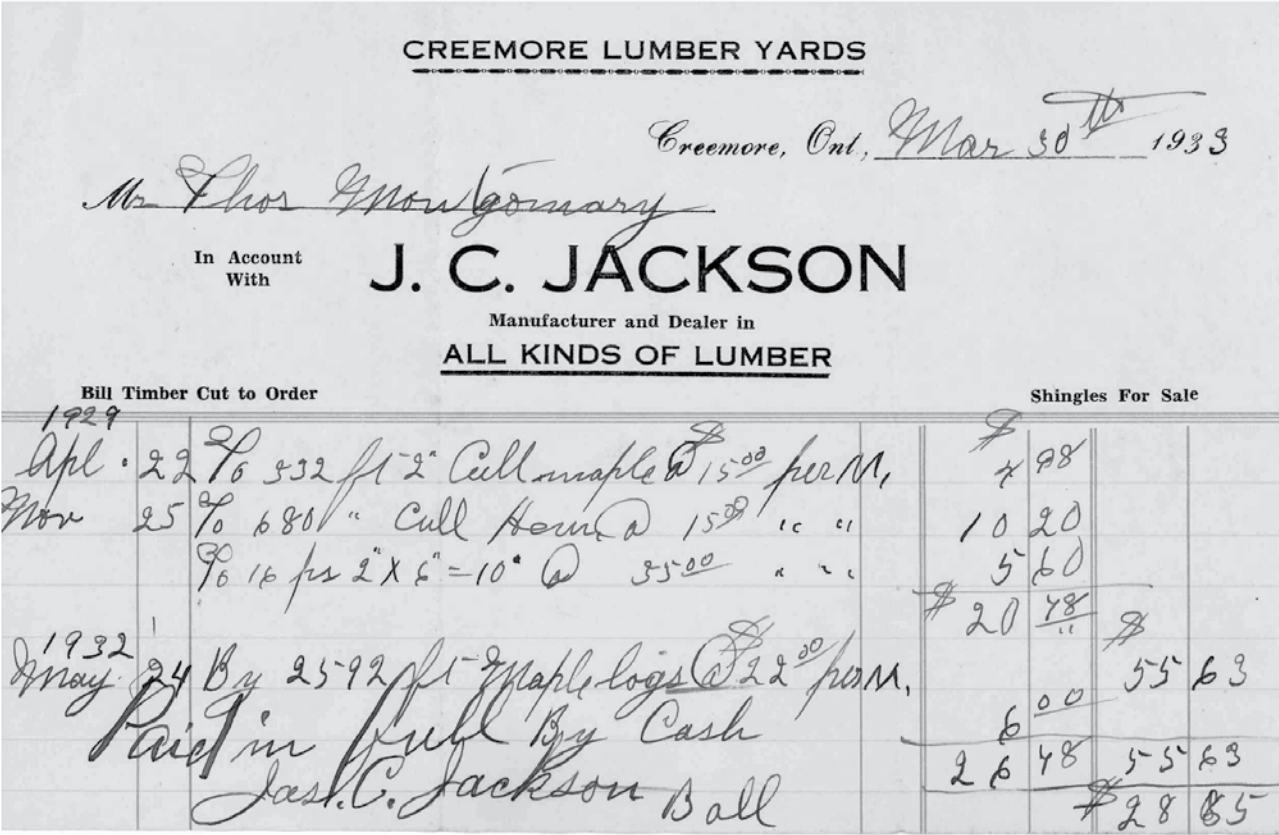 CREEMORE LUMBER YARDS
Creemore, Ont., Mar 30th 1933
Mr Thos Montgomary
In Account With
J. C. JACKSON
Manufacturer and Dealer in
ALL KINDS OF LUMBER
Bill Timber Cut to Order Shingles For Sale
1929
Apl. 22 To 332 ft 2" Cull maple @ $15.00 per M, $ 4 98
Nov 25 To 680 " Cull Hem @ 15.00 " " 10 20
To 16 ps 2" X 6" = 10" @ 35.00 " " " 5 60
$ 20 78
1932
May 24 By 2592 ft Maple logs @ $22.00 per M. $ 55 63
6 00
Paid in full By Cash
26 78 55 63
Jas. C. Jackson Ball $28 85